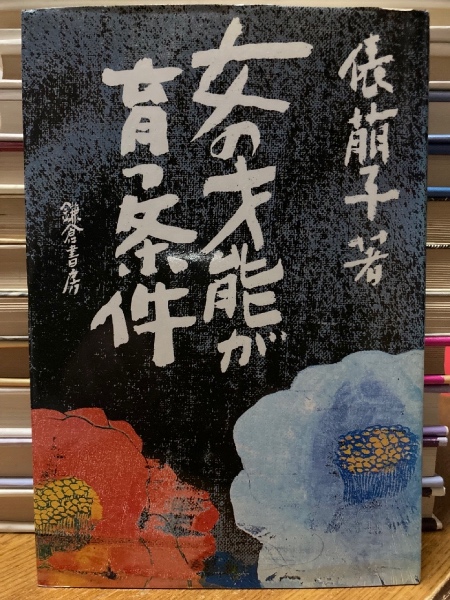 俵萠子著
女の才能が
育つ条件
鎌倉書房